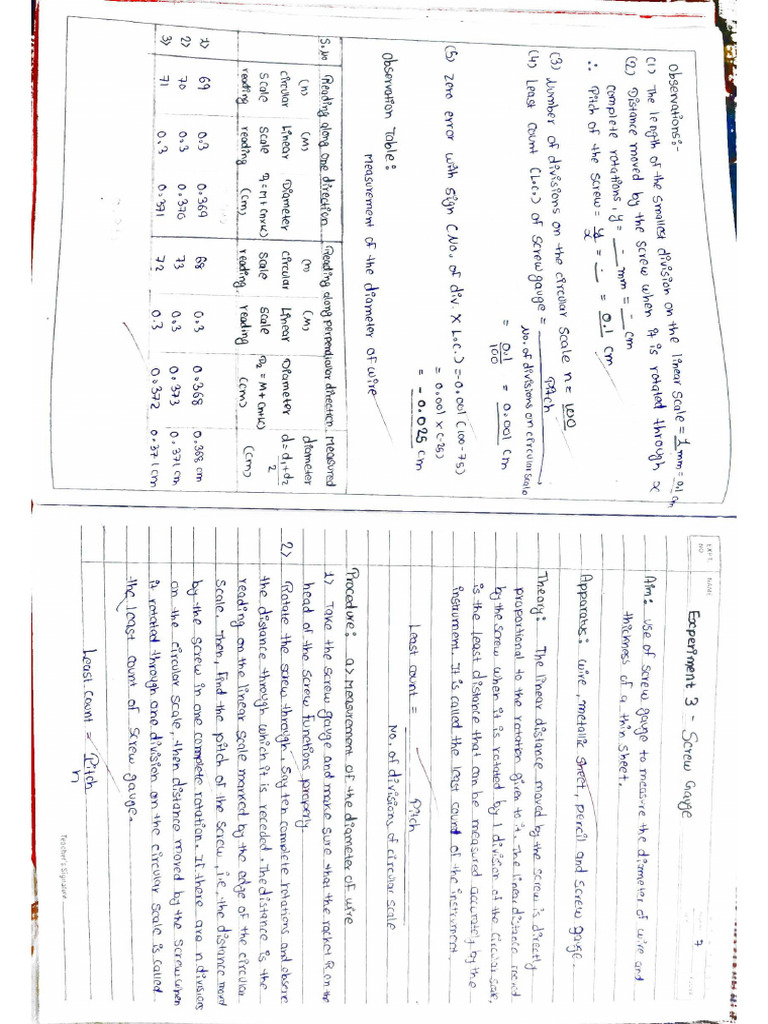 Observations:-
(1) The length of the smallest division on the linear scale = 1 mm = 0.1 cm
(2) Distance moved by the screw when it is rotated through x
complete rotations, y = - mm = - cm
∴ Pitch of the screw = y/x = - = 0.1 cm
(3) Number of divisions on the circular scale n = 100
(4) Least count (L.C.) of screw gauge = Pitch / No. of divisions on circular scale
= 0.1/100 = 0.001 cm
(5) Zero error with sign (No. of div. X L.C.) = -0.001 (100-75)
= 0.001 x (-25)
= -0.025 cm
Observation Table:
Measurement of the diameter of wire
S.No Reading along one direction Reading along perpendicular direction Measured
(n) (M) Diameter (n) (M) Diameter diameter
circular Linear D1=M+(nxLC) circular Linear D2=M+(nxLC) d=d1+d2/2
scale scale (cm) scale scale (cm) (cm)
reading reading reading reading
1) 69 0.3 0.369 68 0.3 0.368 0.368 cm
2) 70 0.3 0.370 73 0.3 0.373 0.371 cm
3) 71 0.3 0.371 72 0.3 0.372 0.371 cm
EXPT. NO. NAME
7
Experiment 3 - Screw Gauge
Aim: Use of screw gauge to measure the diameter of wire and
thickness of a thin sheet.
Apparatus: wire, metallic sheet, pencil and screw gauge.
Theory: The linear distance moved by the screw is directly
proportional to the rotation given to it. The linear distance moved
by the screw when it is rotated by 1 division of the circular scale,
is the least distance that can be measured accurately by the
instrument. It is called the least count of the instrument
Least count = Pitch / No. of divisions of circular scale
Procedure: a) Measurement of the diameter of wire
1) Take the screw gauge and make sure that the rachet R on the
head of the screw functions properly
2) Rotate the screw through say ten complete rotations and observe
the distance through which it is receded. The distance is the
reading on the linear scale marked by the edge of the circular
scale. Then, find the pitch of the screw, i.e., the distance moved
by the screw in one complete rotation. If there are n divisions
on the circular scale, then distance moved by the screw when
it rotated through one division on the circular scale is called
the least count of screw gauge.
Least count = Pitch / n
Teacher's Signature